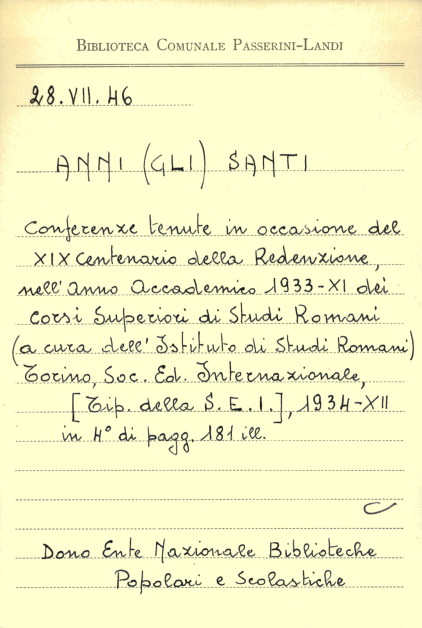 BIBLIOTECA COMUNALE PASSERINI-LANDI
28.VII.46
ANNI (GLI) SANTI
Conferenze tenute in occasione del
XIX Centenario della Redenzione,
nell'Anno Accademico 1933-XI dei
Corsi Superiori di Studi Romani
(a cura dell'Istituto di Studi Romani)
Torino, Soc. Ed. Internazionale,
[Tip. della S.E.I.], 1934-XII
in 4° di pagg. 181 ill.
C
Dono Ente Nazionale Biblioteche
Popolari e Scolastiche